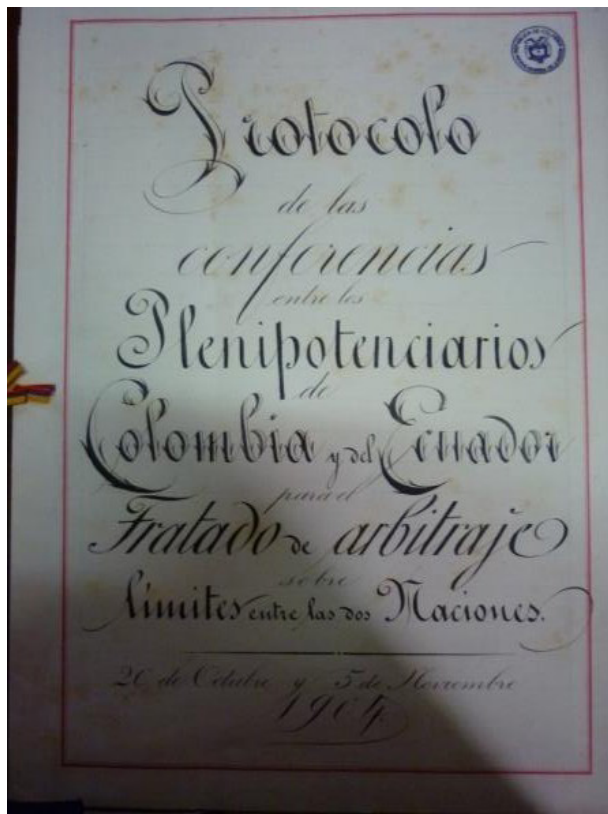 Protocolo
de las
conferencias
entre los
Plenipotenciarios
de
Colombia y del Ecuador
para el
Tratado de arbitraje
sobre
límites entre las dos Naciones.
de Octubre y 5 de Noviembre
1904.